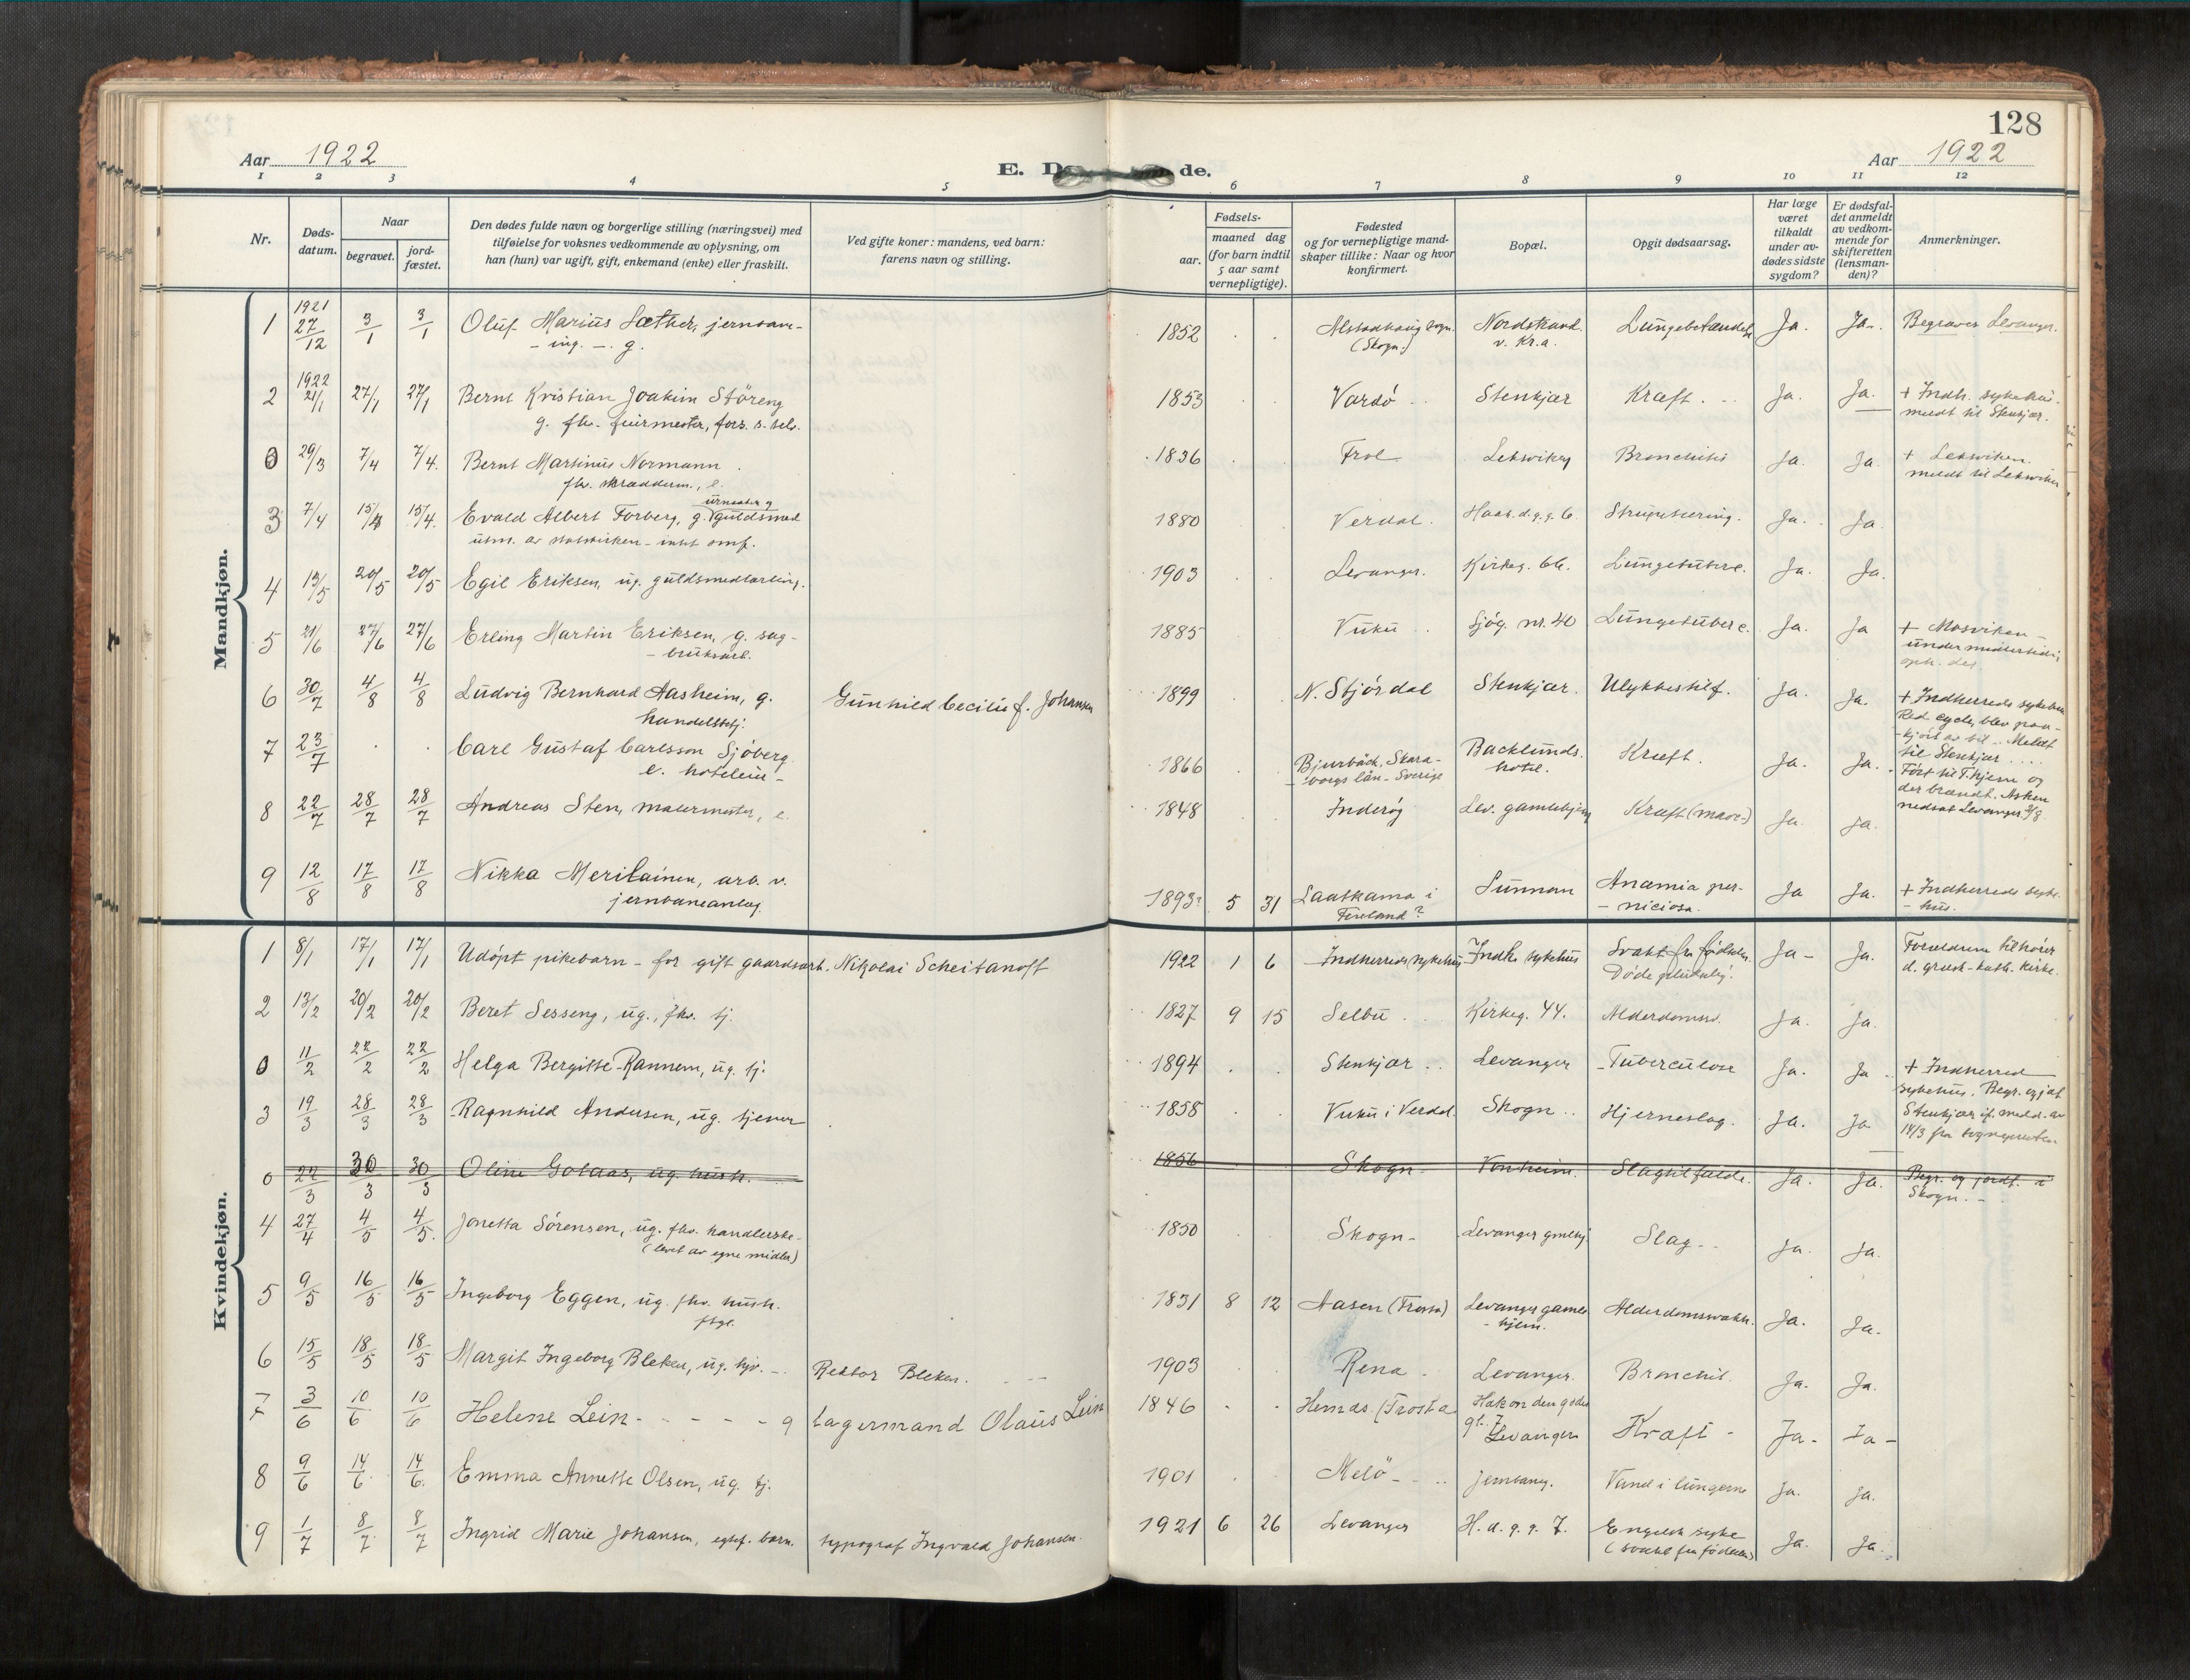 128
Aar 1922
E. D de.
Aar 1922
1 2 3 4 5 6 7 8 9 10 11 12
Nr.
Døds-
datum.
Naar
begravet.
jord-
fæstet.
Den dødes fulde navn og borgerlige stilling (næringsvei) med
tilføielse for voksnes vedkommende av oplysning, om
han (hun) var ugift, gift, enkemand (enke) eller fraskilt.
Ved gifte koner: mandens, ved barn:
farens navn og stilling.
Fødsels-
aar.
maaned dag
(for barn indtil
5 aar samt
vernepligtige).
Fødested
og for vernepligtige mand-
skaper tillike: Naar og hvor
konfirmert.
Bopæl.
Opgit dødsaarsag.
Har læge
været
tilkaldt
under av-
dødes sidste
sygdom?
Er dødsfal-
det anmeldt
av vedkom-
mende for
skifteretten
(lensman-
den)?
Anmerkninger.
Mandkjøn.
1 1921 27/12 3/1 3/1 Oluf Marius Sæther, 1852 Alstadhaug sogn. Nordstrand Ja. Ja. Begraves Levanger.
- ing. - g. (Skogn.) v. Kr.a.
2 1922 21/1 27/1 27/1 Bernt Kristian Joakim Störeng 1853 Vardö Stenkjær Kræft. Ja. Ja. + Indh. sykehus.
g. fhv. meldt til Stenkjær.
0 29/3 7/4 7/4. Bernt Martinus Normann 1836 Frol Leksviken Bronchitis Ja. Ja. + Leksviken
fhv. skrædderm., e. meldt til Leksviken
3 7/4 15/4 15/4. Evald Albert Forberg, g. urmaker g guldsmed 1880 Verdal. Haak. d. g. g. 6. Ja. Ja.
utm. av statskirken - intet
4 13/5 20/5 20/5 Egil Eriksen, ug. guldsmedlærling. 1903 Levanger. Kirkeg. 66. Lungetuberc. Ja. Ja.
5 21/6 27/6 27/6 Erling Martin Eriksen, g. sag- 1885 Vuku Sjøg. nr. 40 Lungetuberc. Ja. Ja + Mosviken -
- bruksarb. under midlertidig
oph. der
6 30/7 4/8 4/8 Ludvig Bernhard Aasheim, g. Gunhild Cecilie f. Johansen 1899 N. Stjördal Stenkjær. Ulykkestilf. Ja. Ja. + Indherreds sykehus
handelsbetj. Red cycle, blev paa-
kjört av bil. Meldt
til Stenkjær
7 23/7 Carl Gustaf Carlsson Sjöberg 1866 Bjurbäck, Skara- Backlunds Kræft. Ja. Ja. Fört til T.hjem og
e. hoteleier - - borgs län - Sverige hotel. der brændt. Asken
nedsat Levanger
8 22/7 28/7 28/7 Andreas Sten, malermester, e. 1848 Inderöy Lev. gamlehjem Kræft (mave-) Ja. Ja.
9 12/8 17/8 17/8 Nikka Merilainen, arb. v. 1893? 5 31 Laatkama i Sunnan Anæmia per- Ja Ja. + Indherreds syke-
jernbaneanlæg. Finland? - niciosa. - hus.
Kvindekjøn.
1 8/1 17/1 17/1 Udöpt pikebarn - for gift gaardsarb. Nikolai Scheitanoff 1922 1 6 Indherreds sykehus Indh. sykehus Svakt fra födselen. Ja - Ja. Forældrene tilhörer
Döde pludselig. d. græsk-kath. kirke.
2 13/2 20/2 20/2 Beret Sesseng, ug., fhv. tj. 1827 9 15 Selbu Kirkeg. 44. Alderdomssv. Ja. Ja.
0 11/2 22/2 22/2 Helga Bergitte Rannem, ug. tj. 1894 Stenkjær Levanger Tuberculose Ja. Ja + Indherred
sykehus. Begr. og jdf.
3 19/3 28/3 28/3 Ragnhild Andersen, ug. tjener 1858 Vuku i Verdal. Skogn Hjerneslag. Ja. Ja Stenkjær if. medd. av
14/3 fra sognepresten
0 22/3 30/3 30/3 Oline Golaas, ug. hush. 1856 Skogn Vonheim. Slagtilfælde. Ja. Ja. Begr. og jordf. i
Skogn. -
4 27/4 4/5 4/5. Jonetta Sörensen, ug. fhv. handlerske - 1850 Skogn - Levanger gmlehj. Slag Ja. Ja.
(levet av egne midler)
5 9/5 16/5 16/5 Ingeborg Eggen, ug. fhv. hush. 1831 8 12 Aasen (Frosta) Levanger gamle Alderdomssvakh. Ja. Ja.
- hjem.
6 15/5 18/5 18/5 Margit Ingeborg Bleken, ug. hjv. - Rektor Bleken. 1903 Rena Levanger. Bronchit. Ja. Ja.
7 3/6 10/6 10/6 Helene Lein - - - - g Lagermand Olaus Lein 1846 Hernds. (Frosta Hakon den godes Kræft - Ja - Ja -
gt. 7 Levanger
8 9/6 14/6. 14/6. Emma Annette Olsen, ug. tj. 1901 Melö Jernbaneg. Vand i lungerne Ja. Ja.
9 1/7 8/7 8/7 Ingrid Marie Johansen, egtef. barn. typograf Ingvald Johansen. 1921 6 26 Levanger H. d. g. g. 7. Engelsk syke Ja. Ja.
(svakel fra födselen)